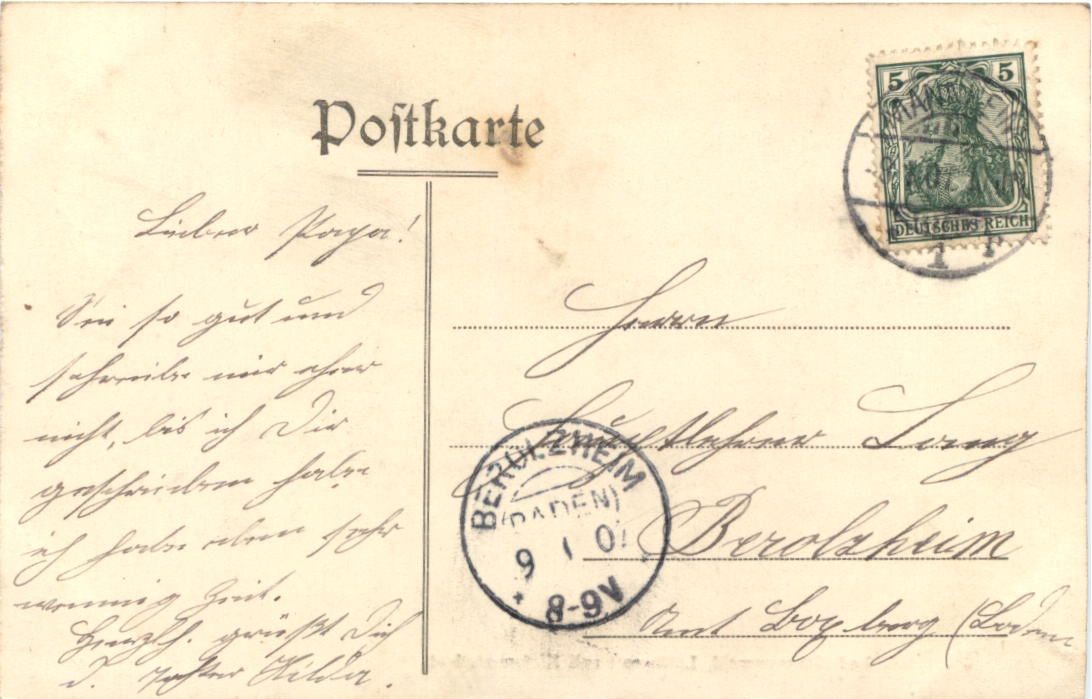 Postkarte
5 5
DEUTSCHES REICH
Lieber Papa!
Sei so gut und
schreibe mir eher
nicht, bis ich Dir
geschrieben habe
ich habe eben sehr
wennig Zeit.
Herzl. grüßt Dich
d. Tochter Hilda.
Herrn
Hauptlehrer Lang
Berolzheim
Amt Boxberg (Baden
BEROLZHEIM
(BADEN)
9 1 0
8-9V